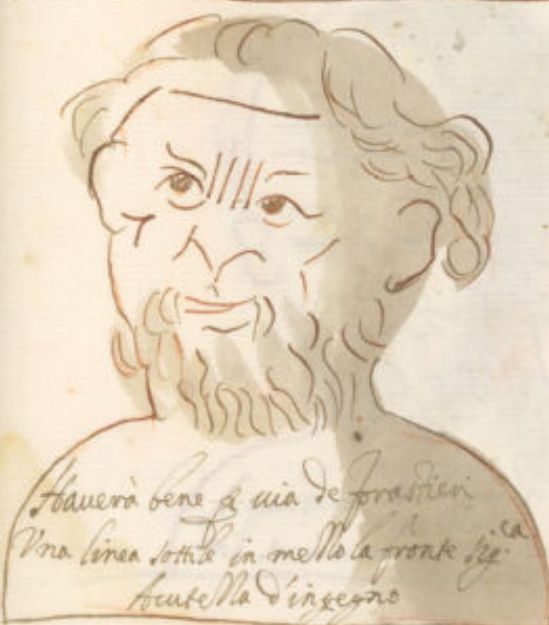 Haverà bene p via de forastieri
Una linea sottile in mezzo la fronte sig.ca
Acutezza d'ingegno